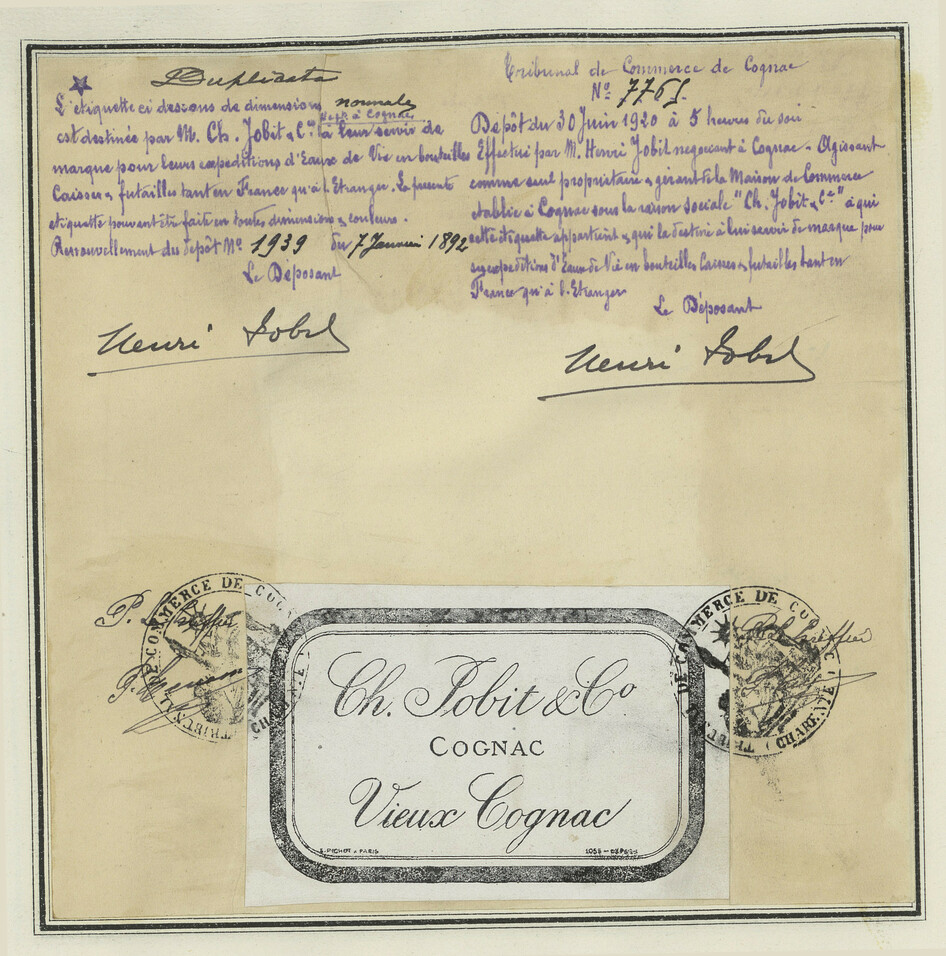 Duplicata
L'étiquette ci dessous de dimensions normale
est destinée par M. Ch. Jobit & Cie à Cognac à leur servir de
marque pour leurs expéditions d'Eaux de Vie en bouteilles
Caisses & futailles tant en France qu'à l'Etranger. La présente
etiquette pouvant être faite en toutes dimensions & couleurs.
Renouvellement du dépôt No 1939 du 7 Janvier 1892
Le Déposant
Henri Jobit
Tribunal de Commerce de Cognac
No 7765.
Dépôt du 30 Juin 1920 à 5 heures du soir
Effectué par M. Henri Jobit negociant à Cognac - Agissant
comme seul propriétaire & gérant de la Maison de Commerce
établie à Cognac sous la raison sociale "Ch. Jobit & Cie" à qui
cette étiquette appartient & qui la destine à lui servir de marque pour
ses expéditions d'Eaux de Vie en bouteilles Caisses & futailles tant en
France qu'à l'Etranger
Le Déposant
Henri Jobit
TRIBUNAL DE COMMERCE DE COGNAC
CHARENTE
Ch. Jobit & Co
COGNAC
Vieux Cognac
E. PICHOT - PARIS
TRIBUNAL DE COMMERCE DE COGNAC
(CHARENTE)